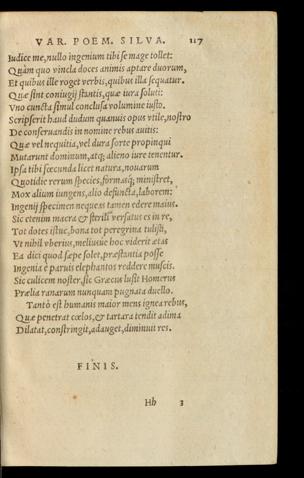 VAR. POEM. SILVA. 117
Iudice me, nullo ingenium tibi se mage tollet:
Quàm quo vincla doces animis aptare duorum,
Et quibus ille roget verbis, quibus illa sequatur.
Quæ sint coniugij stantis, quæ iura soluti:
Vno cuncta simul conclusa volumine iusto.
Scripserit haud dudum quamuis opus vtile, nostro
De conseruandis in nomine rebus auitis:
Quæ vel nequitia, vel dura sorte propinqui
Mutarunt dominum, atq; alieno iure tenentur.
Ipsa tibi fœcunda licet natura, nouarum
Quotidie rerum species, formasq; ministret,
Mox alium iungens, alio defuncta, laborem:
Ingenij specimen nequeas tamen edere maius.
Sic etenim macra & sterili versatus es in re,
Tot dotes istuc, bona tot peregrina tulisti,
Vt nihil vberius, meliusúe hoc viderit ætas
Ea dici quod sæpe solet, præstantia posse
Ingenia è paruis elephantos reddere muscis.
Sic culicem noster, sic Græcus lusit Homerus
Prælia ranarum nunquam pugnata duello.
Tantò est humanis maior mens ignea rebus,
Quæ penetrat cœlos, & tartara tendit ad ima
Dilatat, constringit, adauget, diminuit res.
FINIS.
Hh 3